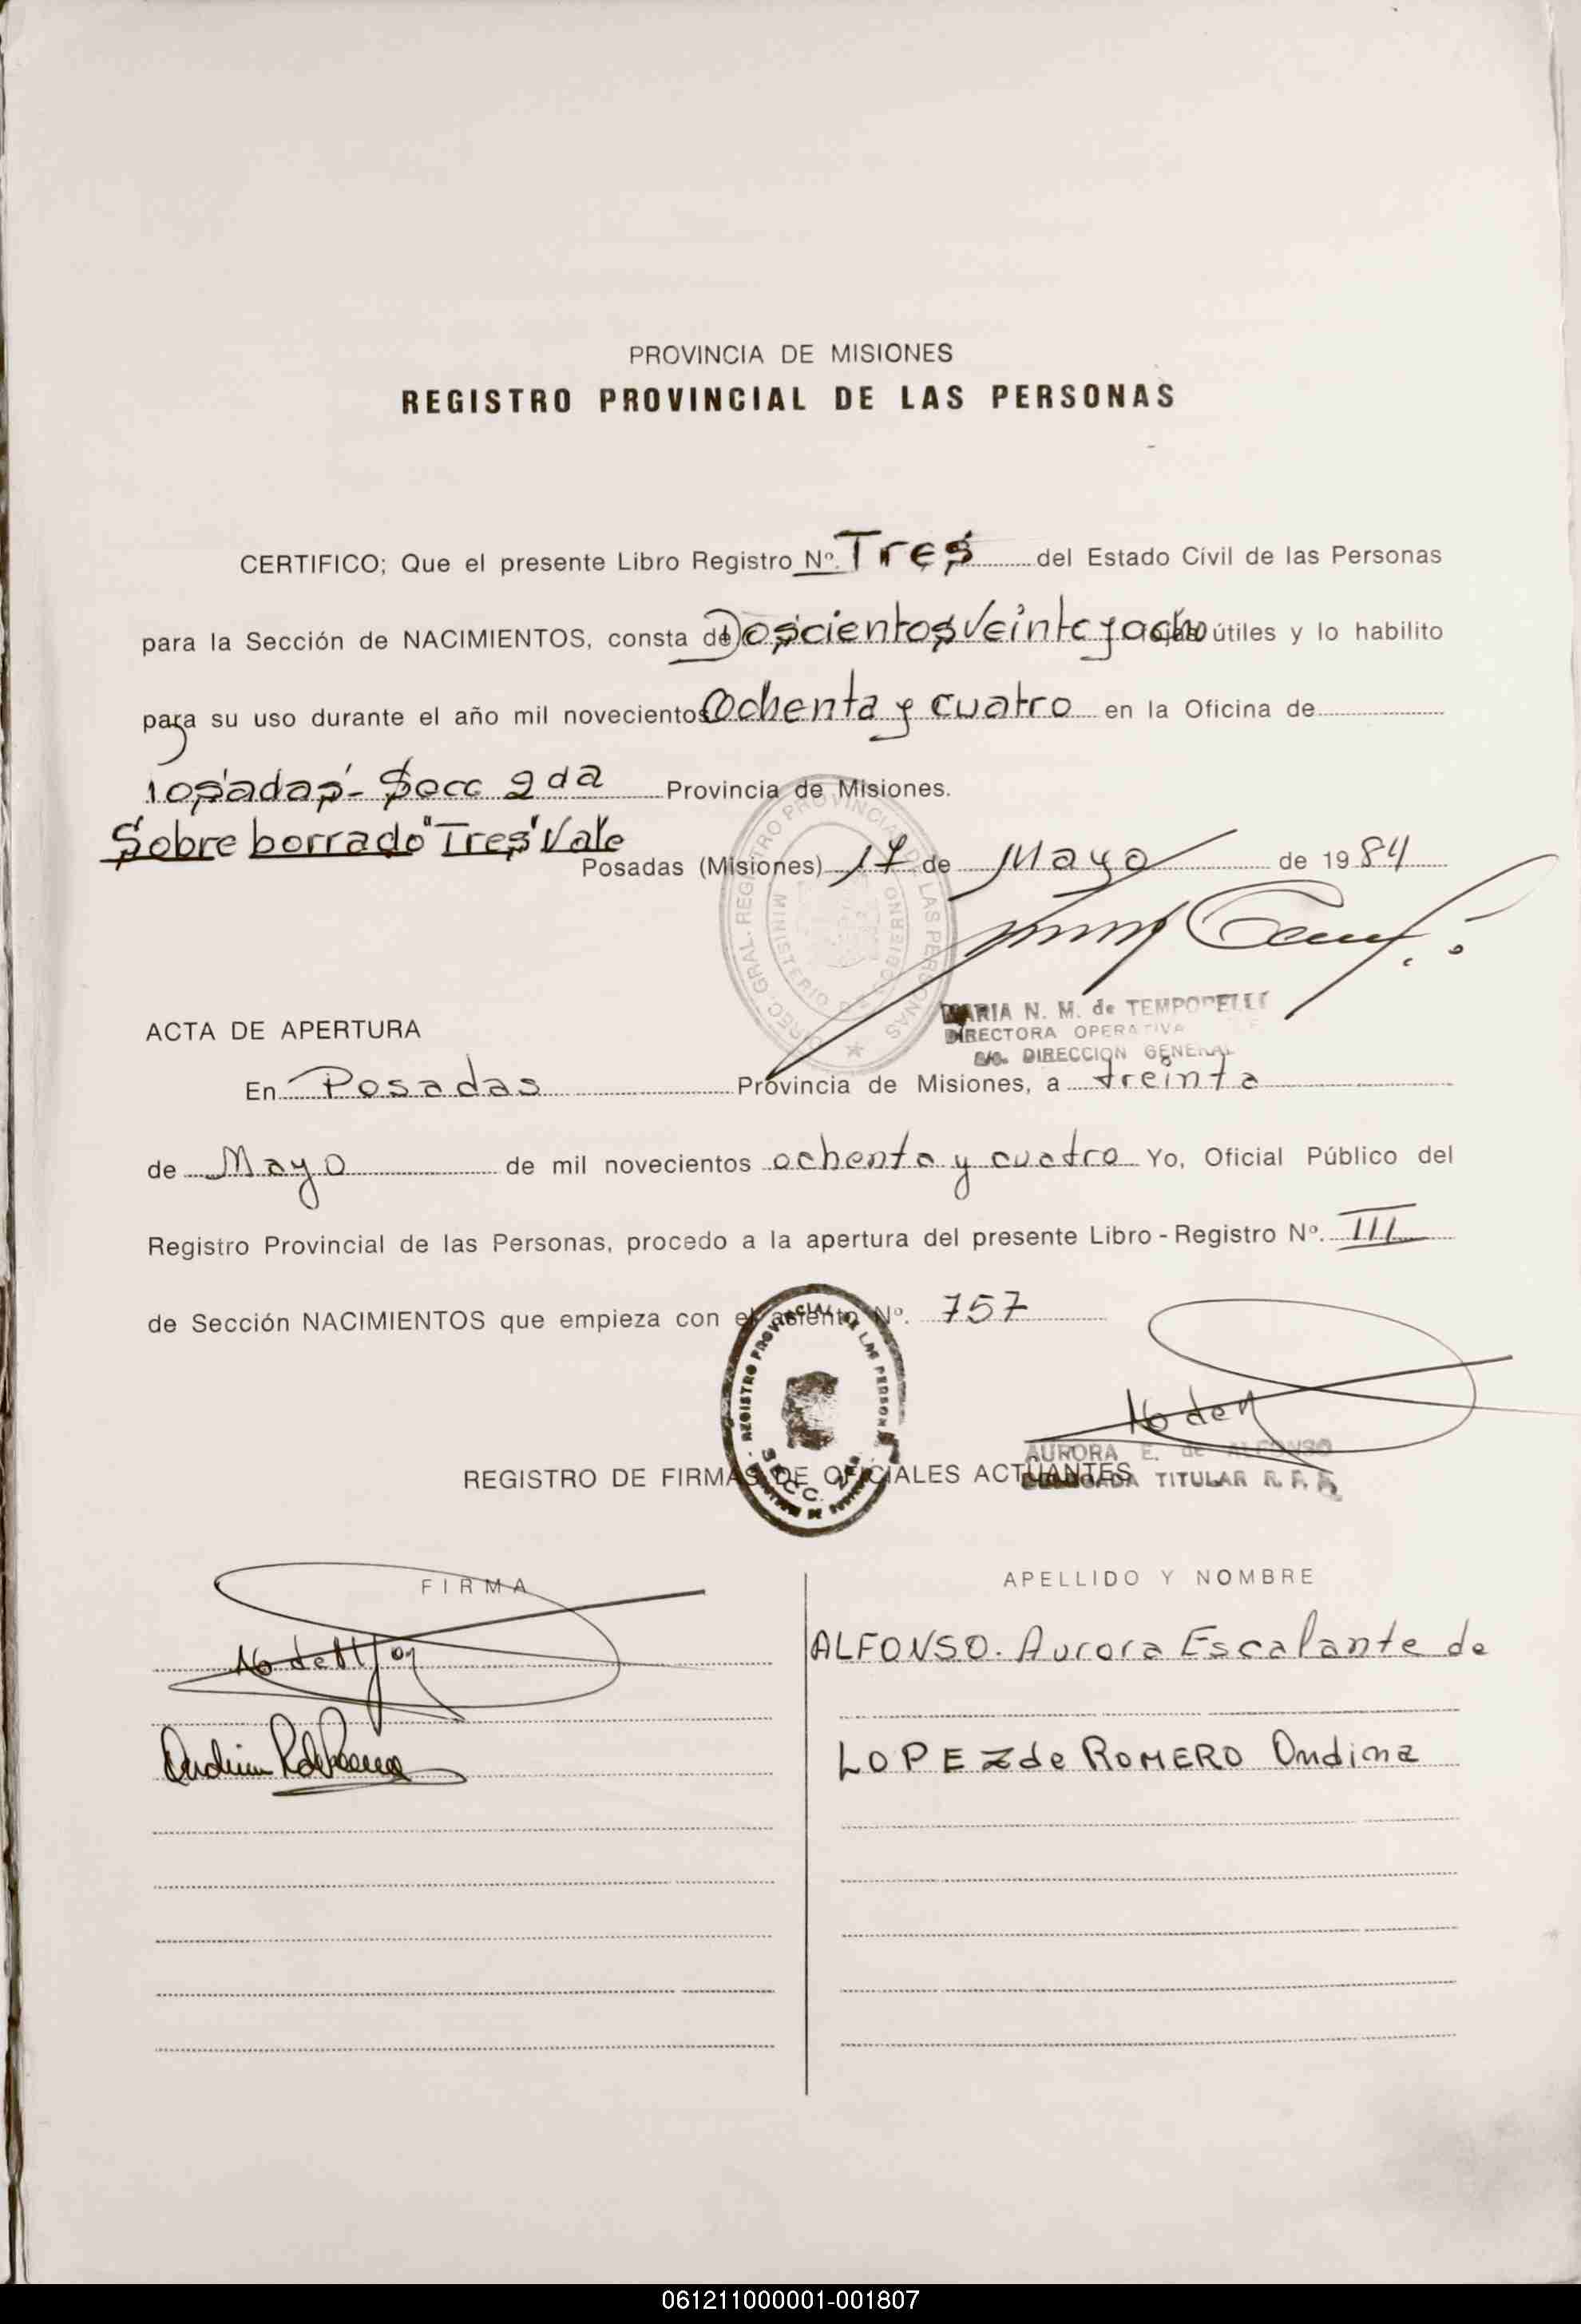 PROVINCIA DE MISIONES
REGISTRO PROVINCIAL DE LAS PERSONAS
CERTIFICO; Que el presente Libro Registro Nº. Tres del Estado Civil de las Personas
para la Sección de NACIMIENTOS, consta de Doscientos Veinte y ocho fojas útiles y lo habilito
para su uso durante el año mil novecientos Ochenta y cuatro en la Oficina de
Posadas - Secc 2da Provincia de Misiones.
Sobre borrado "Tres" Vale
Posadas (Misiones) 17 de Mayo de 1984
MARIA N. M. de TEMPORELLI
DIRECTORA OPERATIVA
a/c. DIRECCION GENERAL
ACTA DE APERTURA
En Posadas Provincia de Misiones, a treinta
de Mayo de mil novecientos ochenta y cuatro Yo, Oficial Público del
Registro Provincial de las Personas, procedo a la apertura del presente Libro - Registro Nº. III
de Sección NACIMIENTOS que empieza con el asiento Nº. 757
AURORA E. de ALFONSO
DELEGADA TITULAR R. P. P.
REGISTRO DE FIRMAS DE OFICIALES ACTUANTES
FIRMA
APELLIDO Y NOMBRE
ALFONSO. Aurora Escalante de
LOPEZ de ROMERO Ondina
061211000001-001807